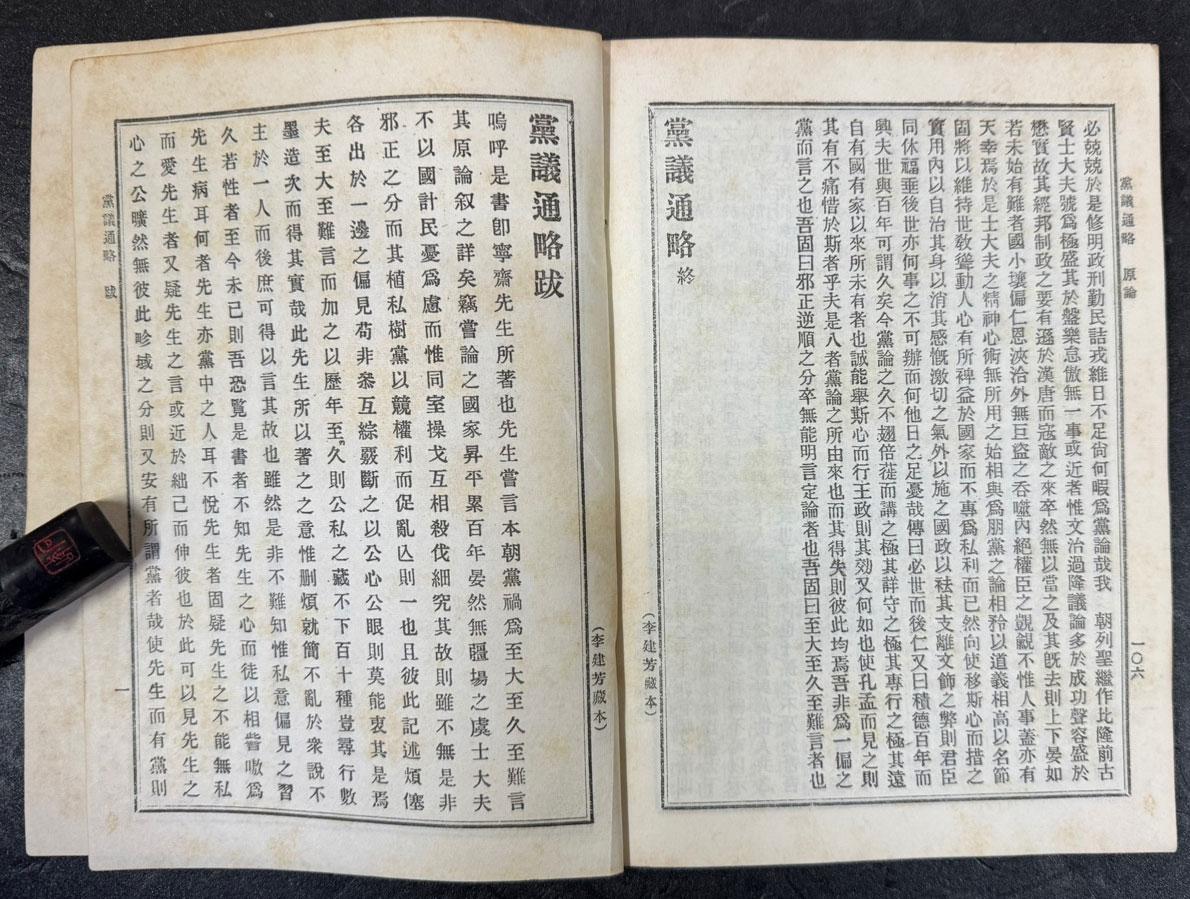 黨議通略 原論
一〇六
必兢兢於是修明政刑勤民詰戎維日不足尙何暇爲黨論哉我 朝列聖繼作比隆前古
賢士大夫號爲極盛其於盤樂怠傲無一事或近者惟文治過隆議論多於成功聲容盛於
懋實故其經邦制政之要有遜於漢唐而寇敵之來卒然無以當之及其旣去則上下晏如
若未始有難者國小壤偏仁恩浹洽外無巨盜之呑噬內絕權臣之覬覦不惟人事蓋亦有
天幸焉於是士大夫之精神心術無所用之始相與爲朋黨之論相矜以道義相高以名節
固將以維持世敎聳動人心有所裨益於國家而不專爲私利而已然向使移斯心而措之
實用內以自治其身以消其感慨激切之氣外以施之國政以袪其支離文飾之弊則君臣
同休福垂後世亦何事之不可辦而何他日之足憂哉傳曰必世而後仁又曰積德百年而
興夫世與百年可謂久矣今黨論之久不翅倍蓰而講之極其詳守之極其專行之極其遠
自有國有家以來所未有者也誠能舉斯心而行王政則其効又何如也使孔孟而見之則
其有不痛惜於斯者乎夫是八者黨論之所由來也而其得失則彼此均焉吾非爲一偏之
黨而言之也吾固曰邪正逆順之分卒無能明言定論者也吾固曰至大至久至難言者也
黨議通略 終
(李建芳藏本)
(李建芳藏本)
黨議通略跋
嗚呼是書卽寧齋先生所著也先生嘗言本朝黨禍爲至大至久至難言
其原論叙之詳矣竊嘗論之國家昇平累百年晏然無疆場之虞士大夫
不以國計民憂爲慮而惟同室操戈互相殺伐細究其故則雖不無是非
邪正之分而其植私樹黨以競權利而促亂亾則一也且彼此記述煩傭
各出於一邊之偏見苟非叅互綜覈斷之以公心公眼則莫能衷其是焉
夫至大至難言而加之以歷年至久則公私之藏不下百十種豈尋行數
墨造次而得其實哉此先生所以著之之意惟删煩就簡不亂於衆說不
主於一人而後庶可得以言其故也雖然是非不難知惟私意偏見之習
久若性者至今未已則吾恐覽是書者不知先生之心而徒以相訾嗷爲
先生病耳何者先生亦黨中之人耳不悅先生者固疑先生之不能無私
而愛先生者又疑先生之言或近於絀己而伸彼也於此可以見先生之
心之公曠然無彼此畛域之分則又安有所謂黨者哉使先生而有黨則
黨議通略 跋
一